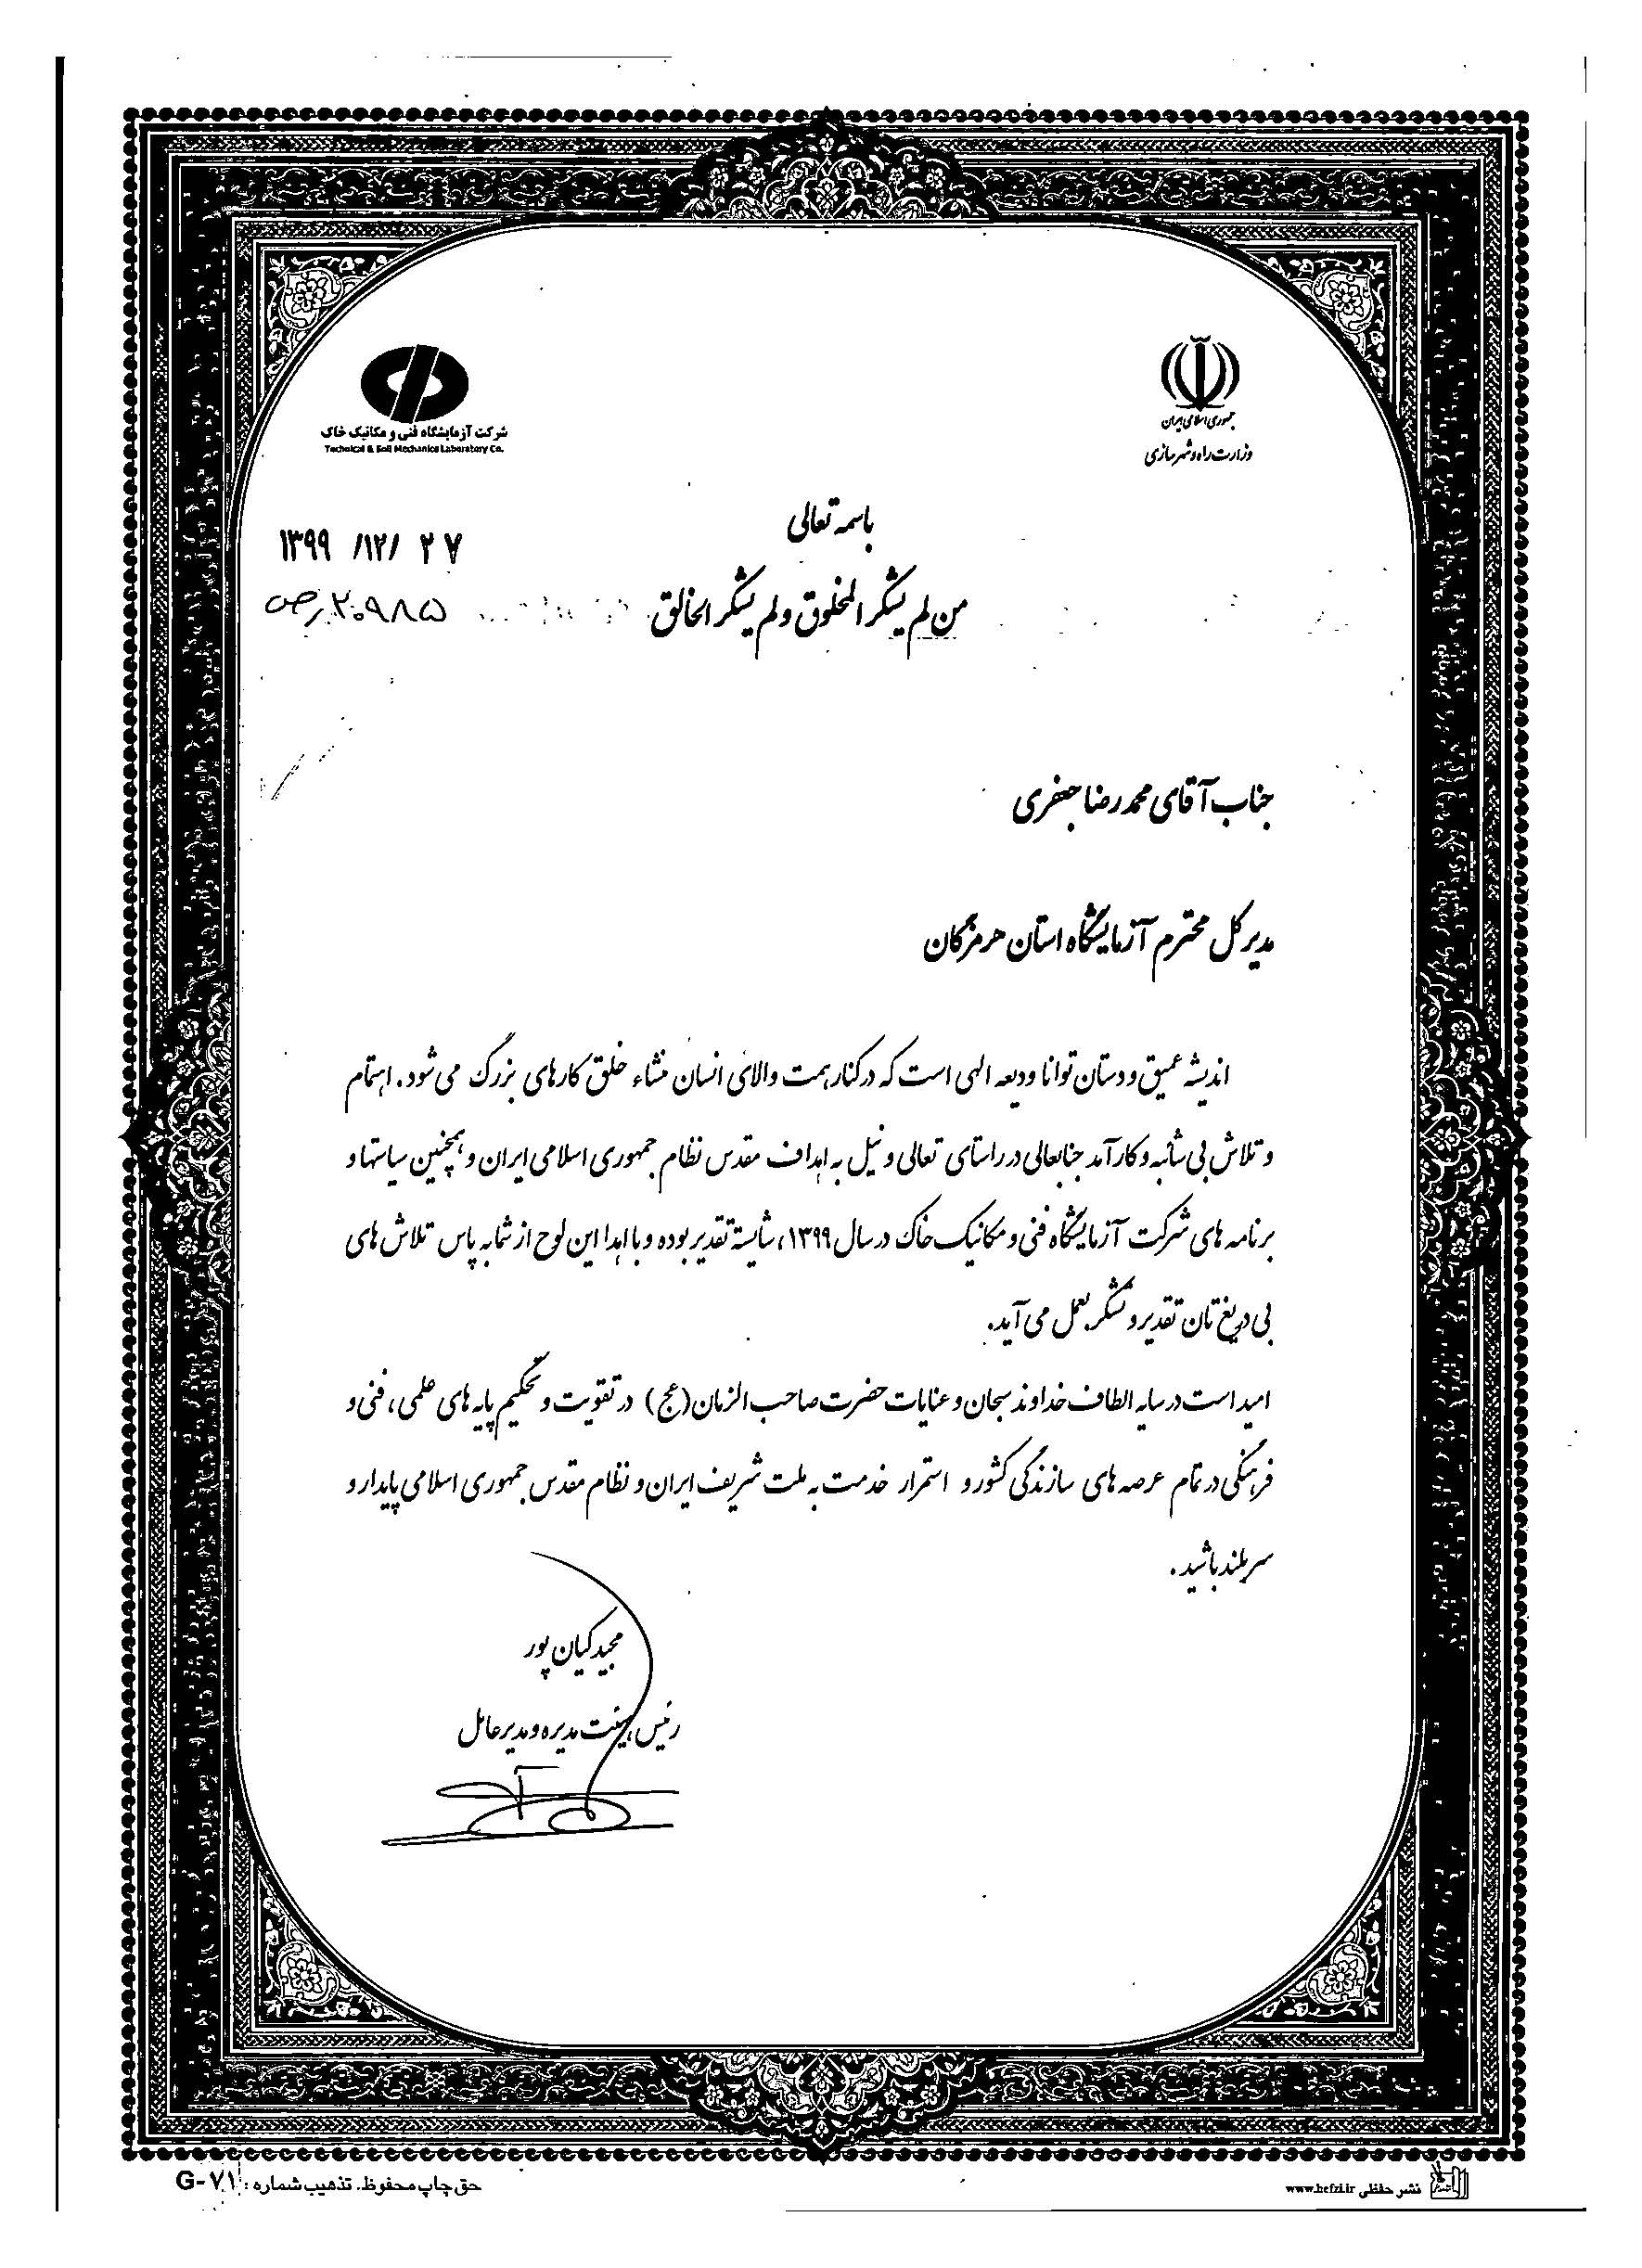 جمهوری اسلامی ایران
وزارت راه و شهرسازی
شرکت آزمایشگاه فنی و مکانیک خاک
Technical & Soil Mechanics Laboratory Co.
باسمه تعالی
۱۳۹۹ /۱۲/ ۲۷
من لم یشکر المخلوق و لم یشکر الخالق
۲۰۹۸۵/ص
جناب آقای محمدرضا جعفری
مدیر کل محترم آزمایشگاه استان هرمزگان
اندیشه عمیق و دستان توانا ودیعه الهی است که در کنار همت والای انسان منشاء خلق کارهای بزرگ می شود. اهتمام
و تلاش بی شائبه و کارآمد جنابعالی در راستای تعالی و نیل به اهداف مقدس نظام جمهوری اسلامی ایران و همچنین سیاستها و
برنامه های شرکت آزمایشگاه فنی و مکانیک خاک در سال ۱۳۹۹، شایسته تقدیر بوده و با اهدا این لوح از شما به پاس تلاش های
بی دریغ تان تقدیر و تشکر بعمل می آید.
امید است در سایه الطاف خداوند سبحان و عنایات حضرت صاحب الزمان (عج) در تقویت و تحکیم پایه های علمی، فنی و
فرهنگی در تمام عرصه های سازندگی کشور و استمرار خدمت به ملت شریف ایران و نظام مقدس جمهوری اسلامی پایدار و
سربلند باشید.
مجید کیان پور
رئیس هیئت مدیره و مدیرعامل
نشر حفظی www.hefzi.ir
حق چاپ محفوظ. تذهیب شماره : G-۷۱